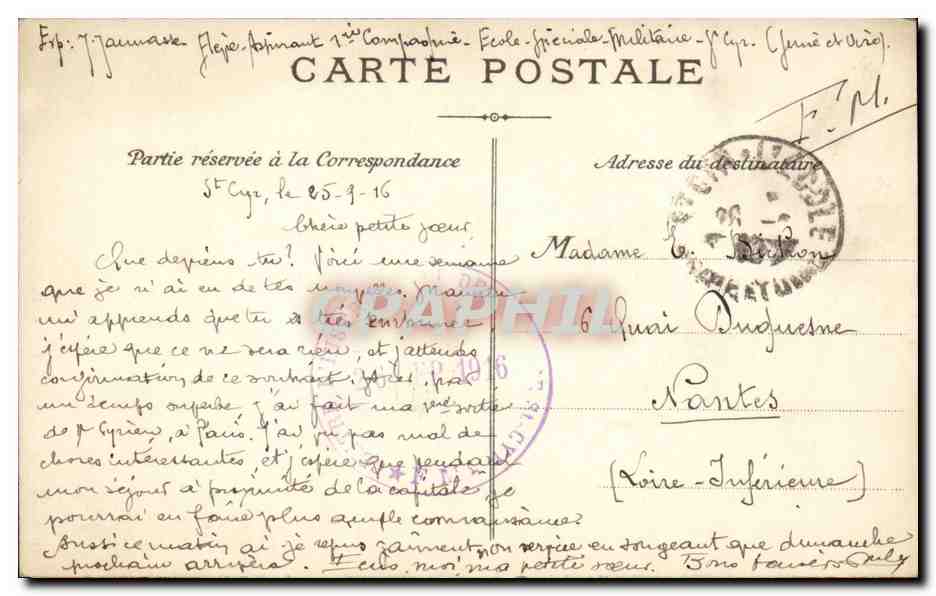 Exp: J. Jannasse Elève-Aspirant 1ère Compagnie - Ecole-Spéciale-Militaire - St Cyr. (Seine et Oise).
CARTE POSTALE
F. M.
Partie réservée à la Correspondance
Adresse du destinataire
St Cyr, le 25-9-16
Chère petite sœur,
Que deviens tu? Voici une semaine
que je n'ai eu de tes nouvelles. Maman
m'apprends que tu es très enrhumée
j'espère que ce ne sera rien, et j'attends
confirmation de ce souhait. Hier, par
un temps superbe j'ai fait ma 1ère sortie
de St Cyrien, à Paris. J'ai vu pas mal de
choses intéressantes, et j'espère que pendant
mon séjour à proximité de la capitale je
pourrai en faire plus ample connaissance.
Aussi ce matin ai je repris gaiment mon service en songeant que dimanche
prochain arrivera. Ecris moi, ma petite sœur. Bons baisers
Madame E.
6 Quai Duguesne
Nantes
(Loire-Inférieure)
CPAPHIL
1916